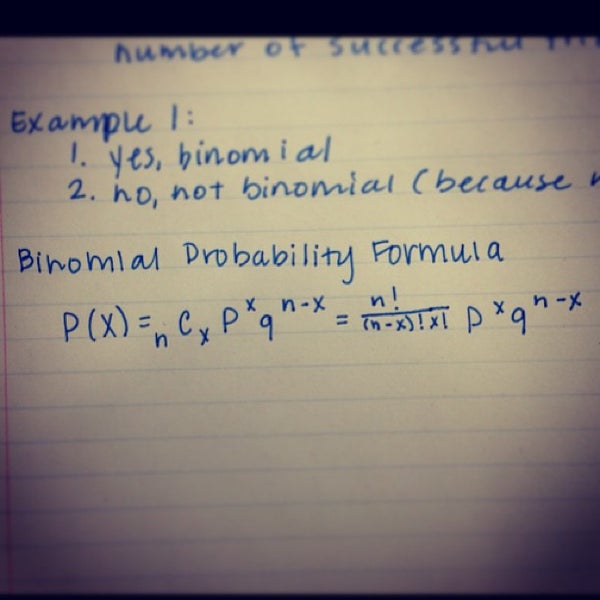 number of successful
Example 1:
1. yes, binomial
2. no, not binomial (because
Binomial Probability Formula
P(x) = nCx p^x q^n-x = n!/(n-x)!x! p^x q^n-x